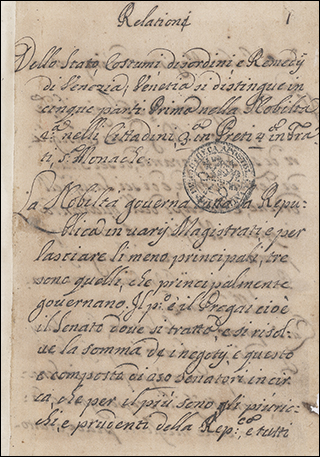 Relationi
1
Dello Stato Costumi disordini e Remedij
di Venezia, Venetia si distingue in
cinque parti Prima nella Nobiltà
2.ª nelli Cittadini, 3.º in Preti 4.º in Fra
ti 5.º Monache.
La Nobiltà governa tutta la Repu
blica in varij Magistrati e per
lasciare li meno principali, tre
sono quelli, che principalmente
governano. Il p.º è il Pregai cioè
il Senato dove si tratta, e si risol
ve la somma de i negotij, e questo
e composto di 250 Senatori in cir
ca, che per il più sono gli più ric
chi, e prudenti della Rep.ca e tutti